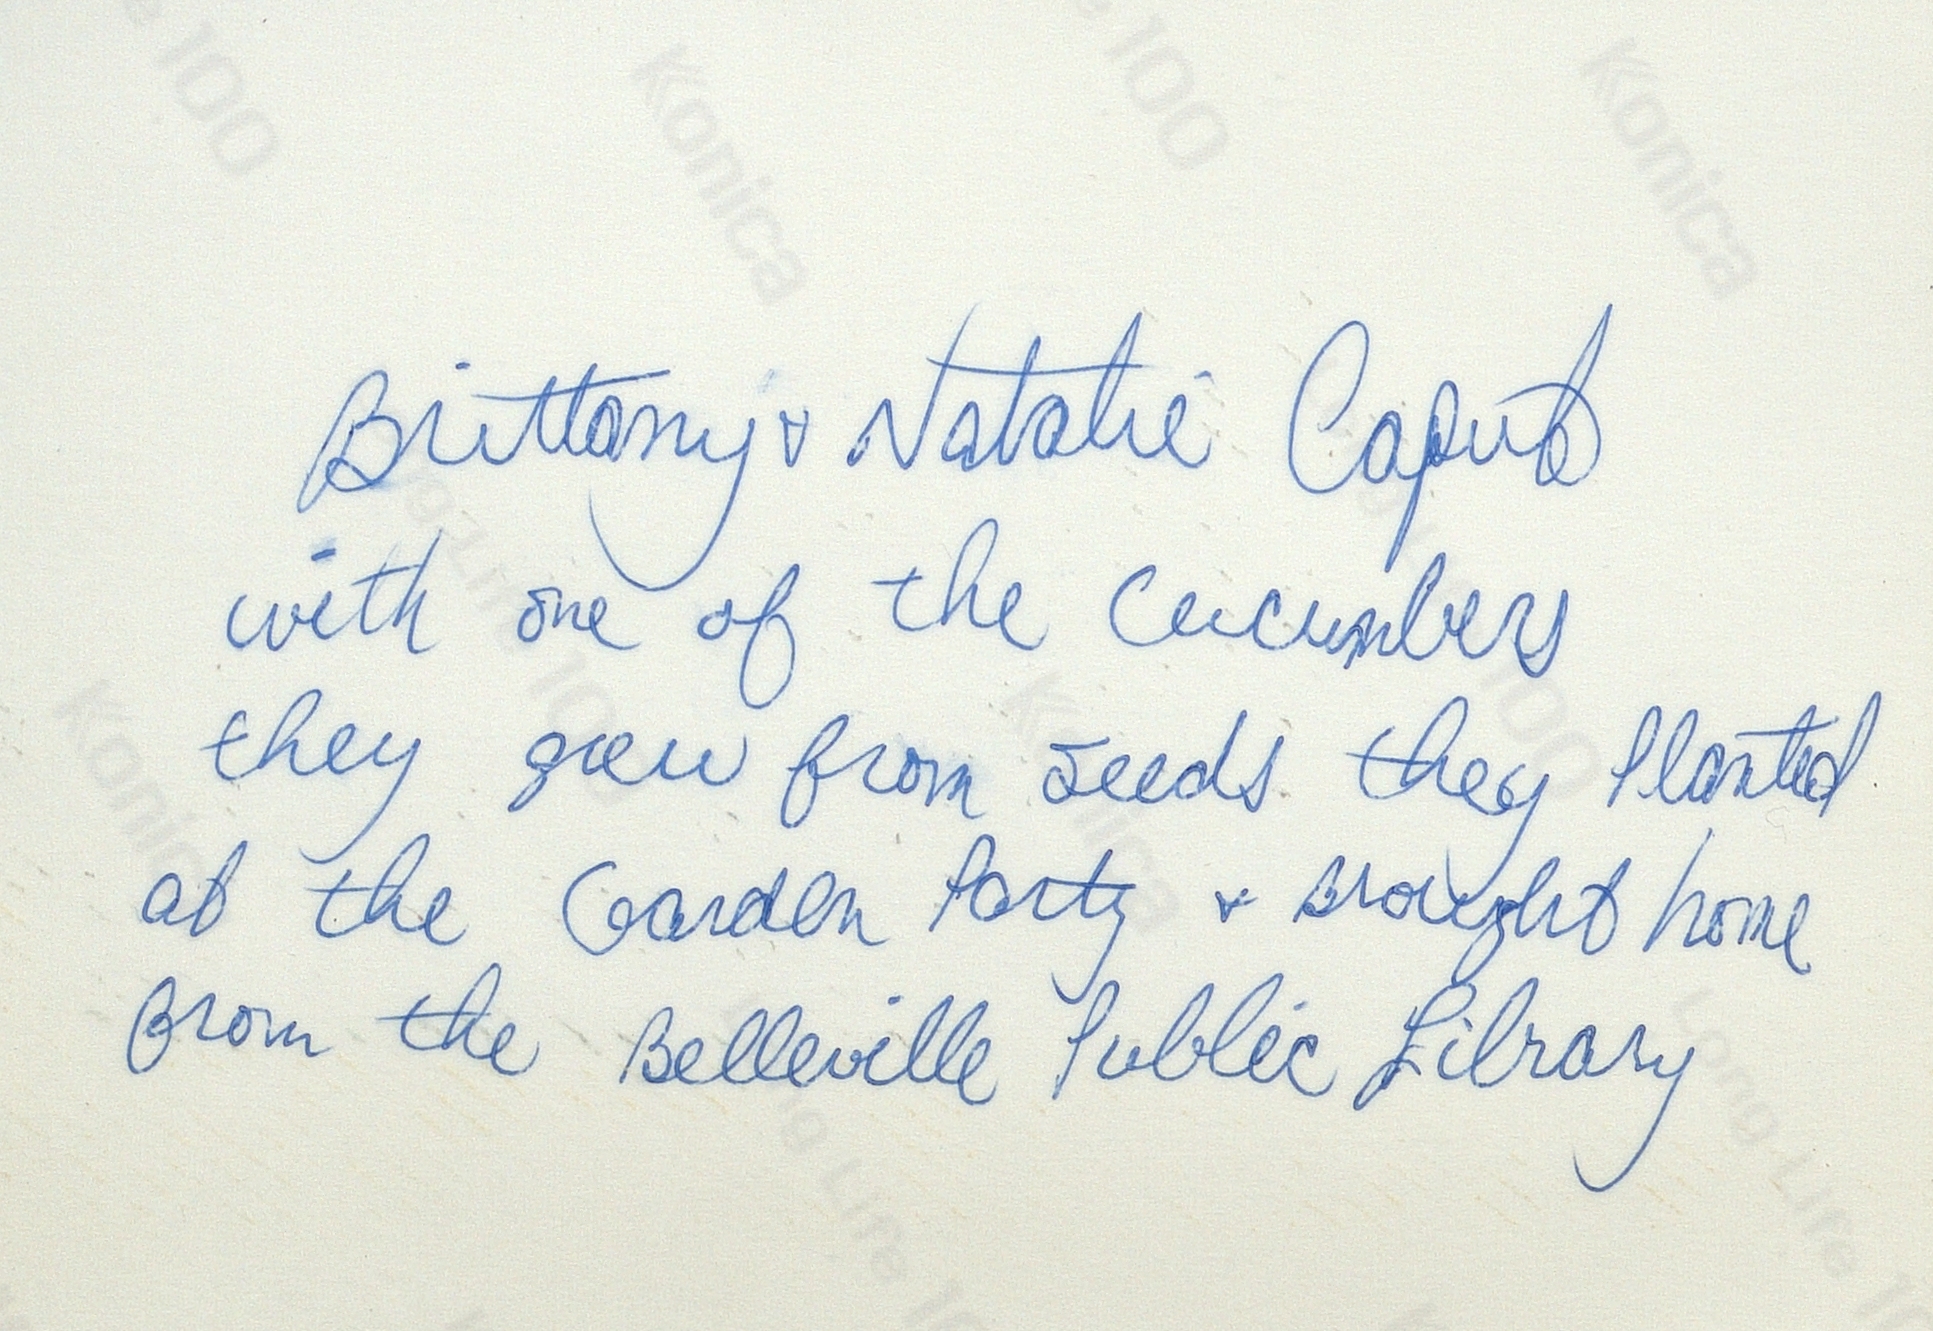 Brittany & Natalie Caputo
with one of the cucumbers
they grew from seeds they Planted
at the Garden Party & Brought home
from the Belleville Public Library
Konica
Konica
Konica
Konica
Long Life 100